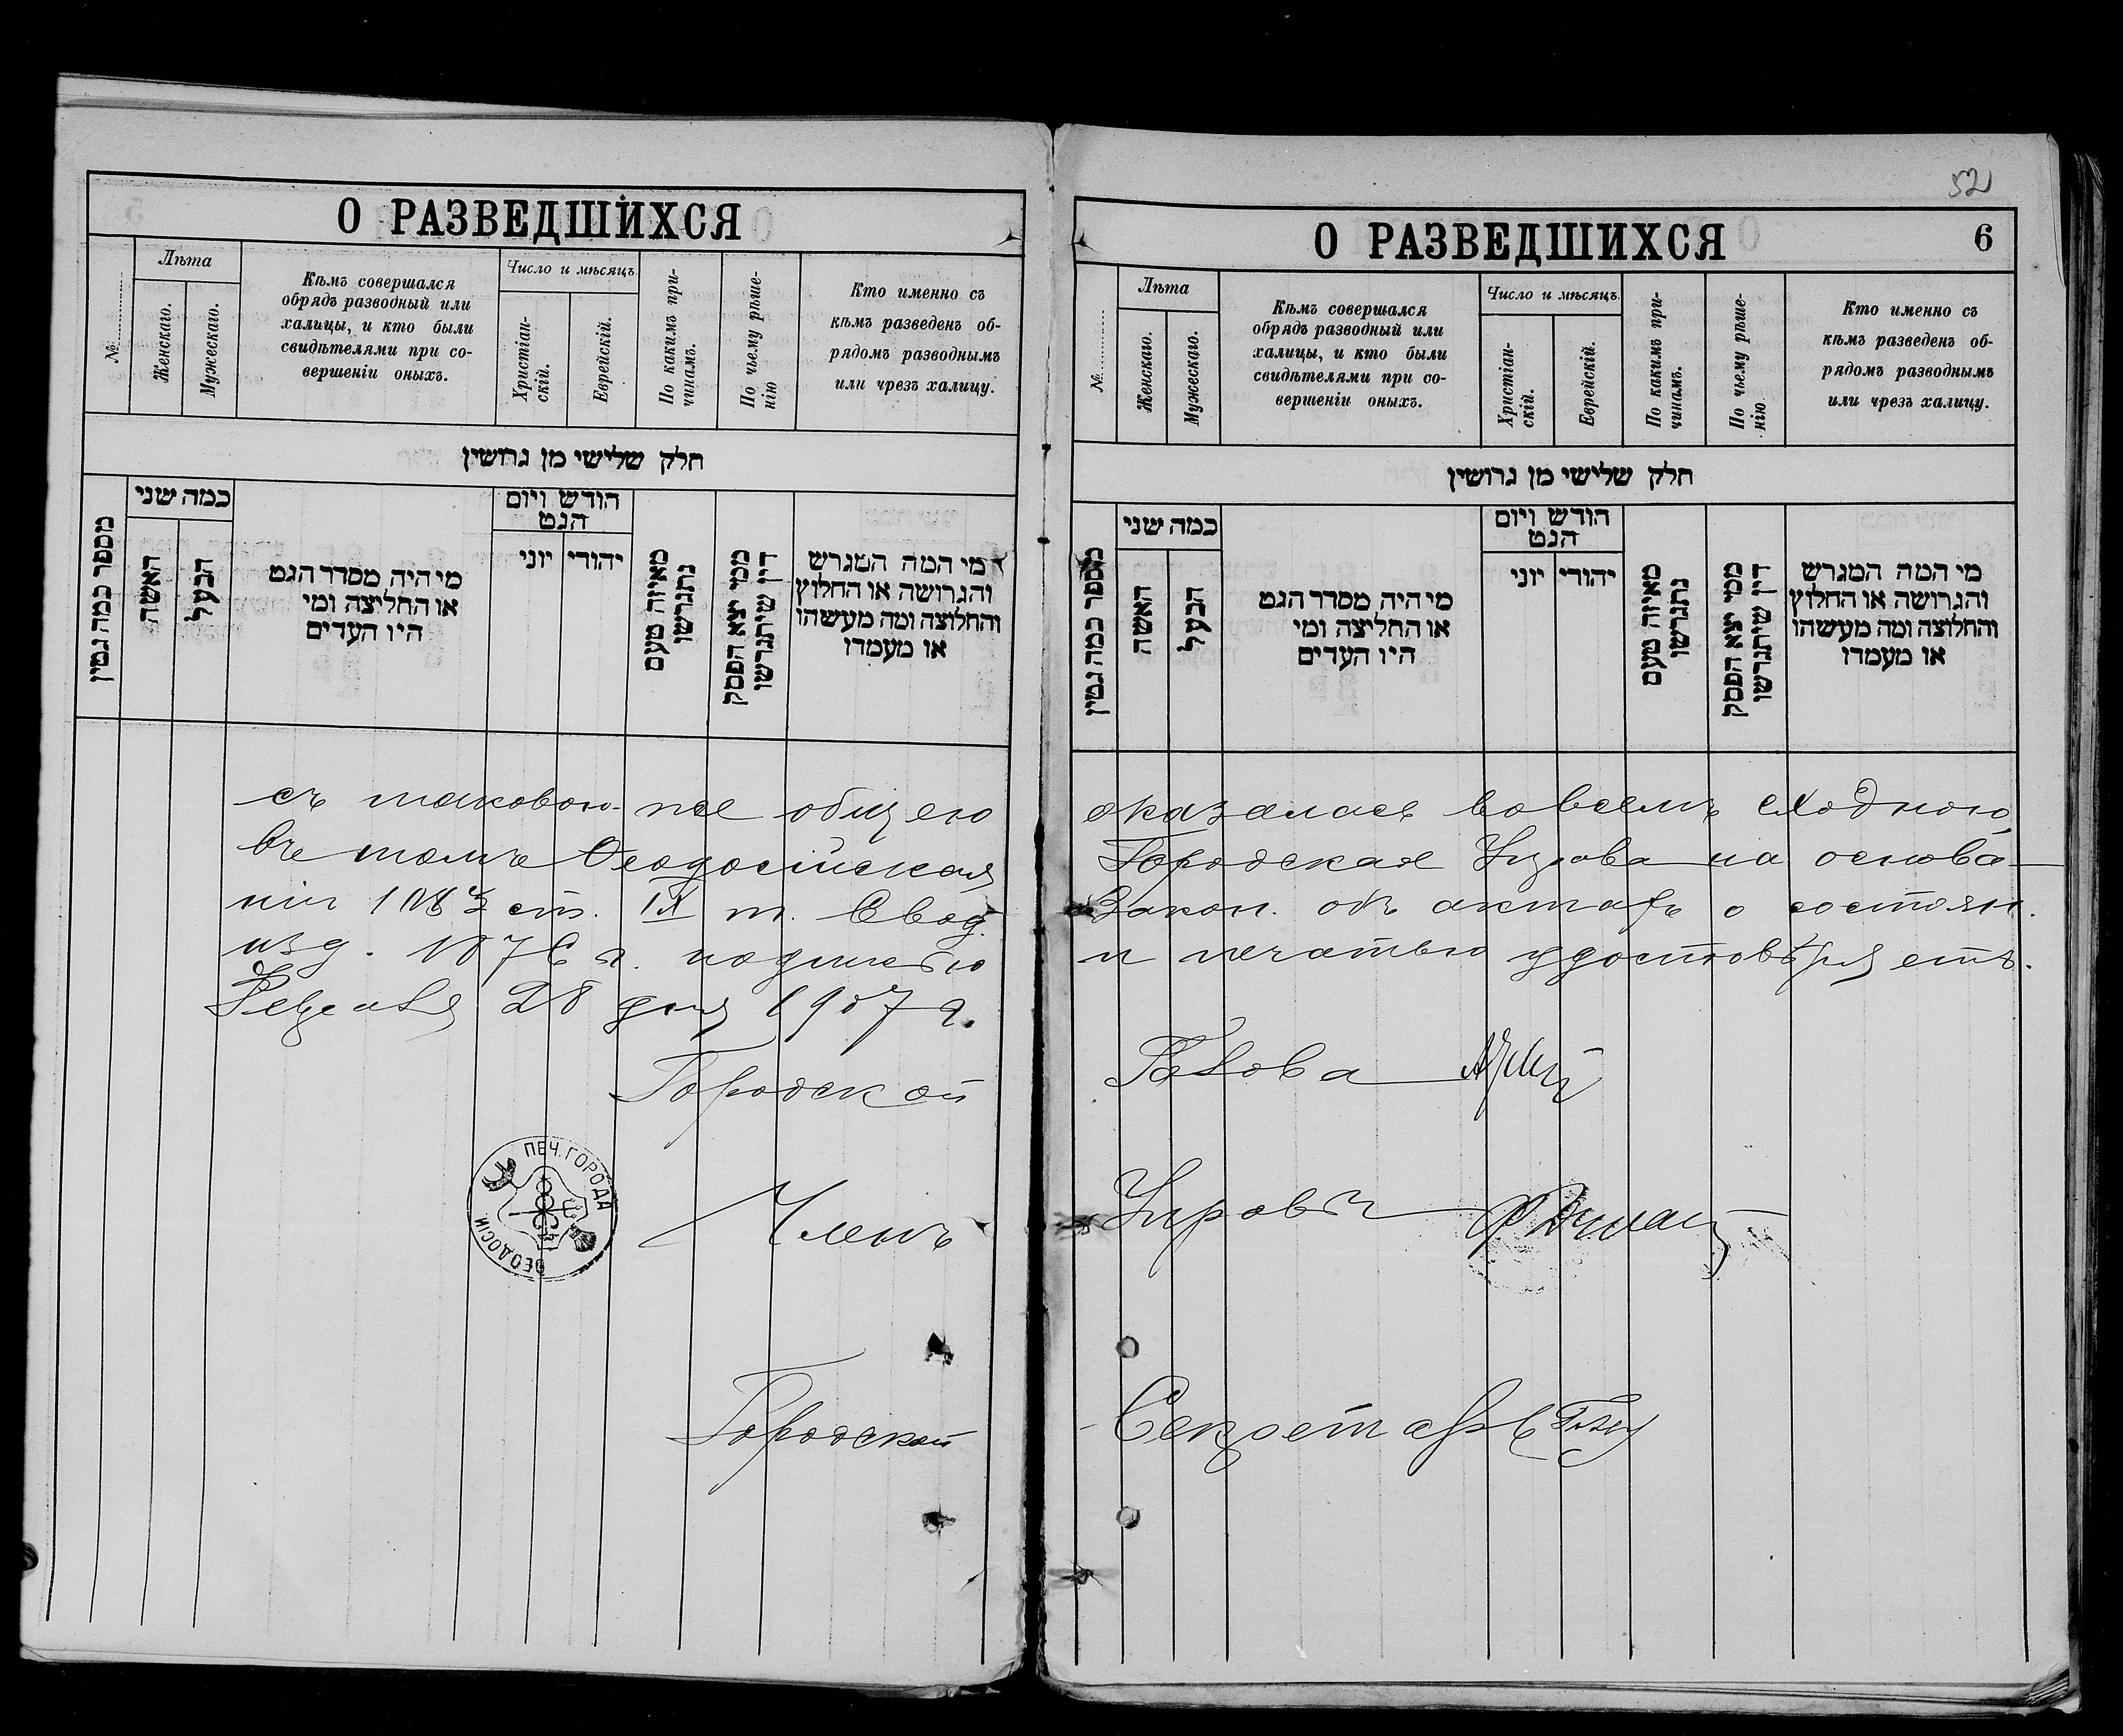 О РАЗВЕДШИХСЯ
№
Лѣта
Женскаго.
Мужескаго.
Кѣмъ совершался
обрядъ разводный или
халицы, и кто были
свидѣтелями при со-
вершеніи оныхъ.
Число и мѣсяцъ
Христіан-
скій.
Еврейскій.
По какимъ при-
чинамъ.
По чьему рѣше-
нію
Кто именно съ
кѣмъ разведенъ об-
рядомъ разводнымъ
или чрезъ халицу.
חלק שלישי מן גרושין
מספר כמה גטין
כמה שני
האשה
הבעל
מי היה מסדר הגט
או החליצה ומי
היו העדים
הודש ויום
הגט
יוני
יהודי
מאיזה טעם
נתגרשו
ממי יצא הפסק
דין שיתגרשו
מי המה המגרש
והגרושה או החלוץ
והחלוצה ומה מעשהו
או מעמדו
съ таковою-же общею
въ томъ Ѳеодосійская
ніи ст. IX т. Свод.
изд. 1876 г. подписью
28 дня 1907 г.
Городской
ПЕЧ. ГОРОДА
ѲЕОДОСІИ
Членъ
Городской
52
О РАЗВЕДШИХСЯ
6
№
Лѣта
Женскаго.
Мужескаго.
Кѣмъ совершался
обрядъ разводный или
халицы, и кто были
свидѣтелями при со-
вершеніи оныхъ.
Число и мѣсяцъ
Христіан-
скій.
Еврейскій.
По какимъ при-
чинамъ.
По чьему рѣше-
нію
Кто именно съ
кѣмъ разведенъ об-
рядомъ разводнымъ
или чрезъ халицу.
חלק שלישי מן גרושין
מספר כמה גטין
כמה שני
האשה
הבעל
מי היה מסדר הגט
או החליצה ומי
היו העדים
הודש ויום
הגט
יוני
יהודי
מאיזה טעם
נתגרשו
ממי יצא הפסק
דין שיתגרשו
מי המה המגרש
והגרושה או החלוץ
והחלוצה ומה מעשהו
או מעמדו
оказалась во всемъ сходною,
Городская Управа на основа-
Закон. объ актахъ о состоян.
и печатью удостовѣряетъ.
Голова
Управы
Секретарь